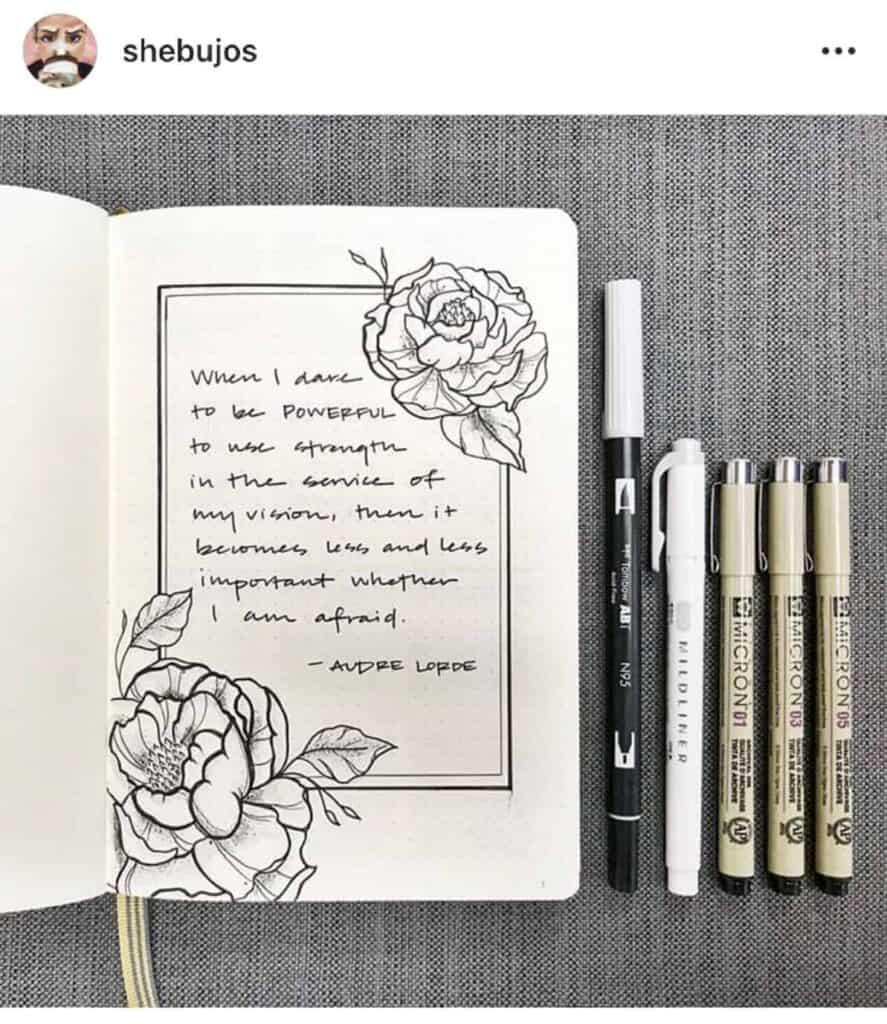 shebujos
When I dare
to be POWERFUL
to use strength
in the service of
my vision, then it
becomes less and less
important whether
I am afraid.
- AUDRE LORDE
Tombow ABT
N95
MILDLINER
MICRON 01
MICRON 03
MICRON 05